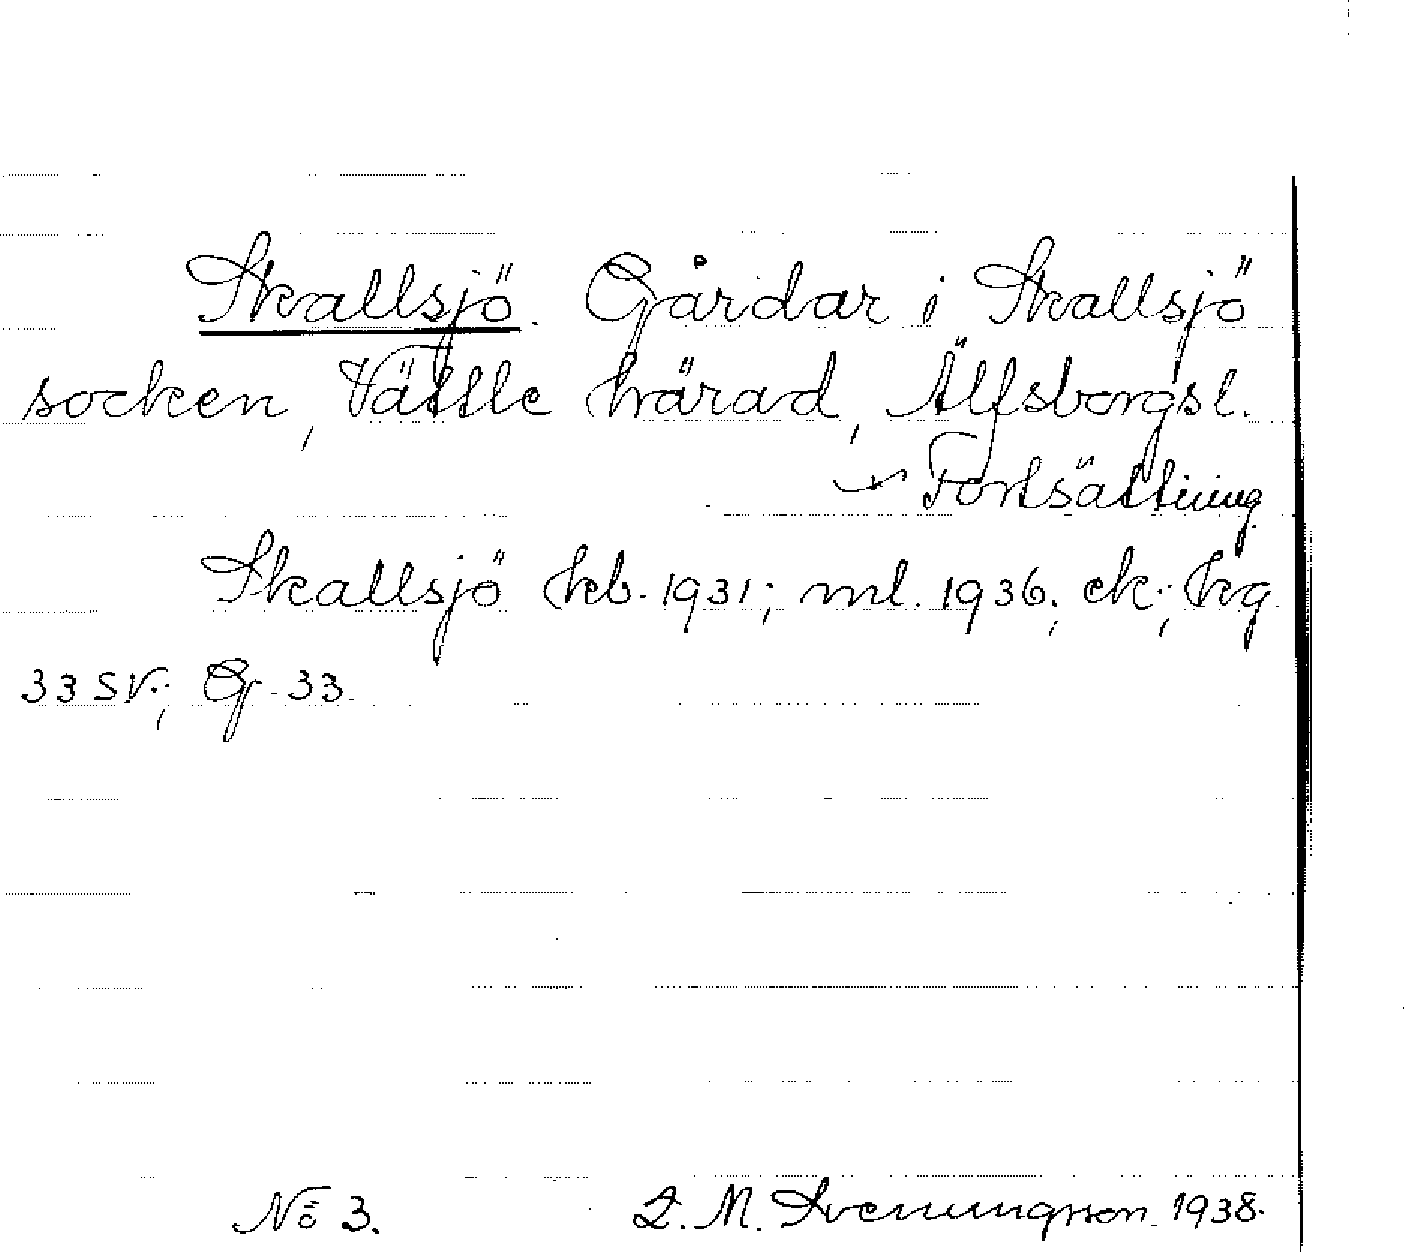 Skallsjö. Gårdar i Skallsjö
socken, Vättle härad, Älfsborgs l.
Fortsättning.
Skallsjö kb. 1931; ml. 1936; ek.; kg
33 SV.; G. 33.
No 3. L. M. Svenungsson. 1938.